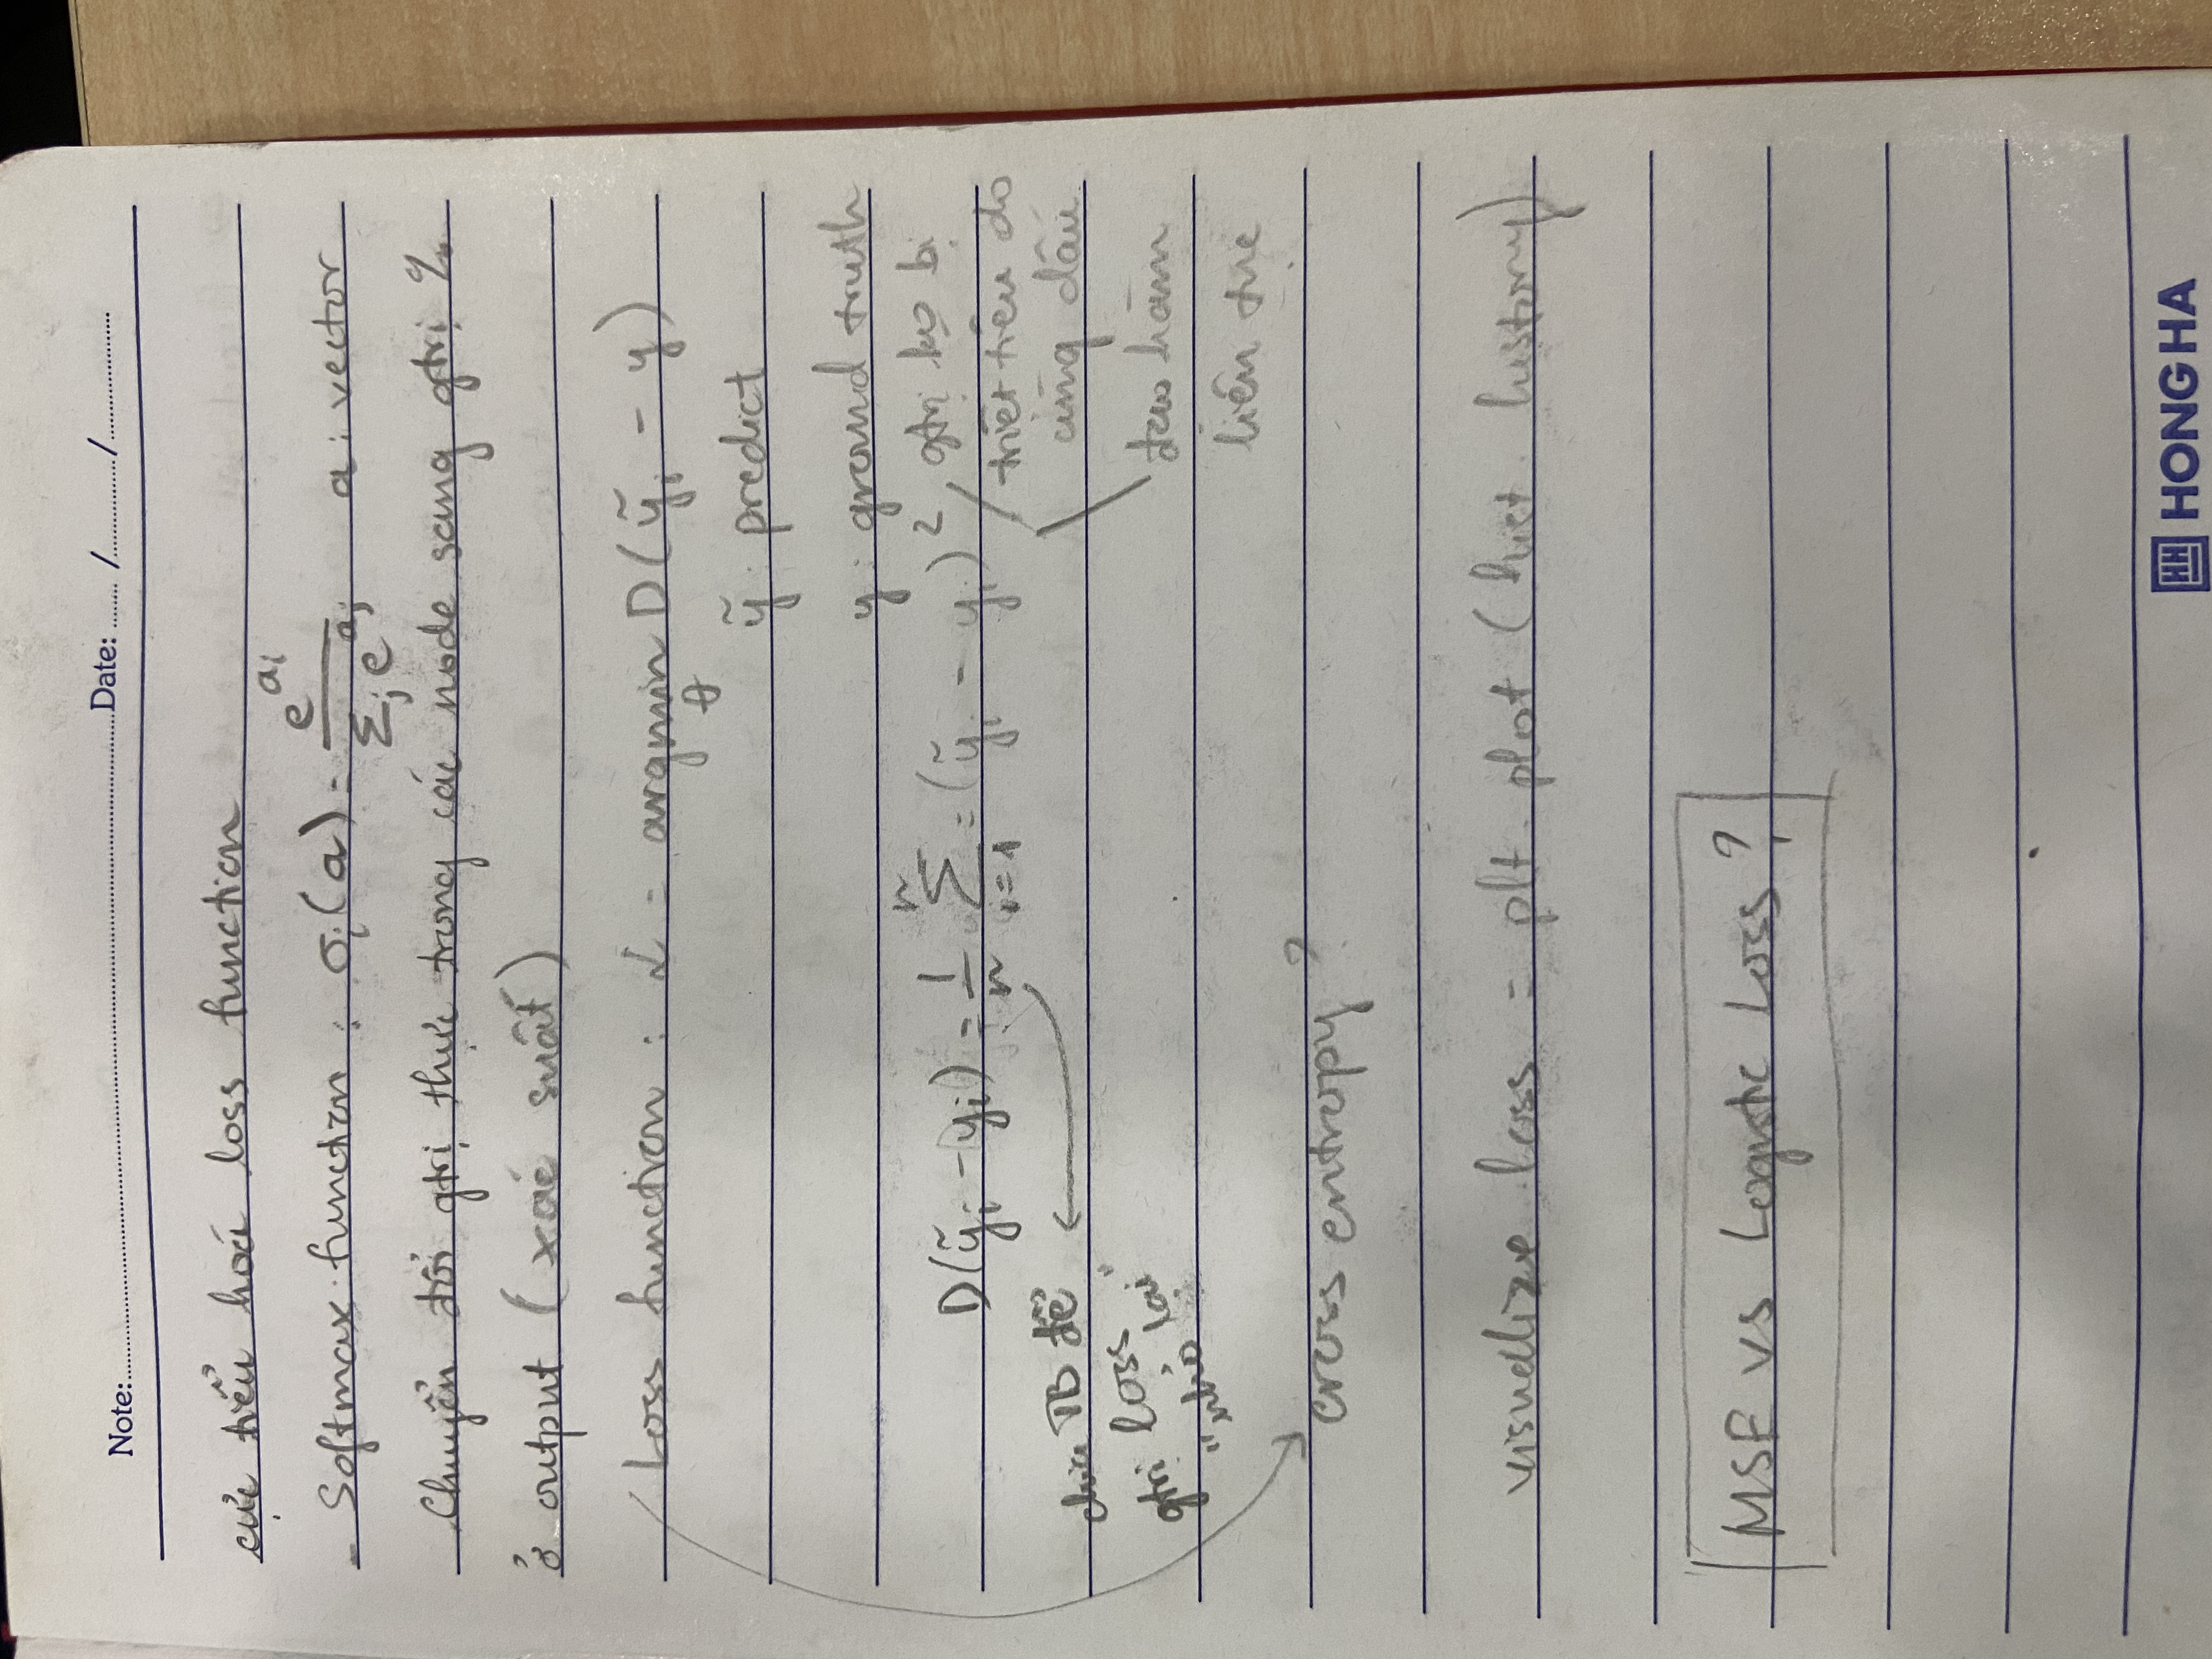 Note: Date: / /
cực tiểu hoá loss function
- Softmax function : σᵢ(a) = e^{aᵢ} / Σⱼ e^{aⱼ} a : vector
Chuyển đổi gtrị thực trong các node sang gtrị %
ở output (xác suất)
Loss function : L = argmin_θ D(ỹᵢ - y)
ỹ : predict
y : ground truth
D(ỹᵢ - yᵢ) = 1/n Σ_{i=1}^{n} = (ỹᵢ - yᵢ)²
gtrị ko bị
triệt tiêu do
cùng dấu
đạo hàm
liên tục
chia TB để
gtrị loss
"nhỏ lại"
cross entropy ?
visualize loss = plt. plot (hist. history)
MSE vs Logistic Loss ?
HH HONG HA